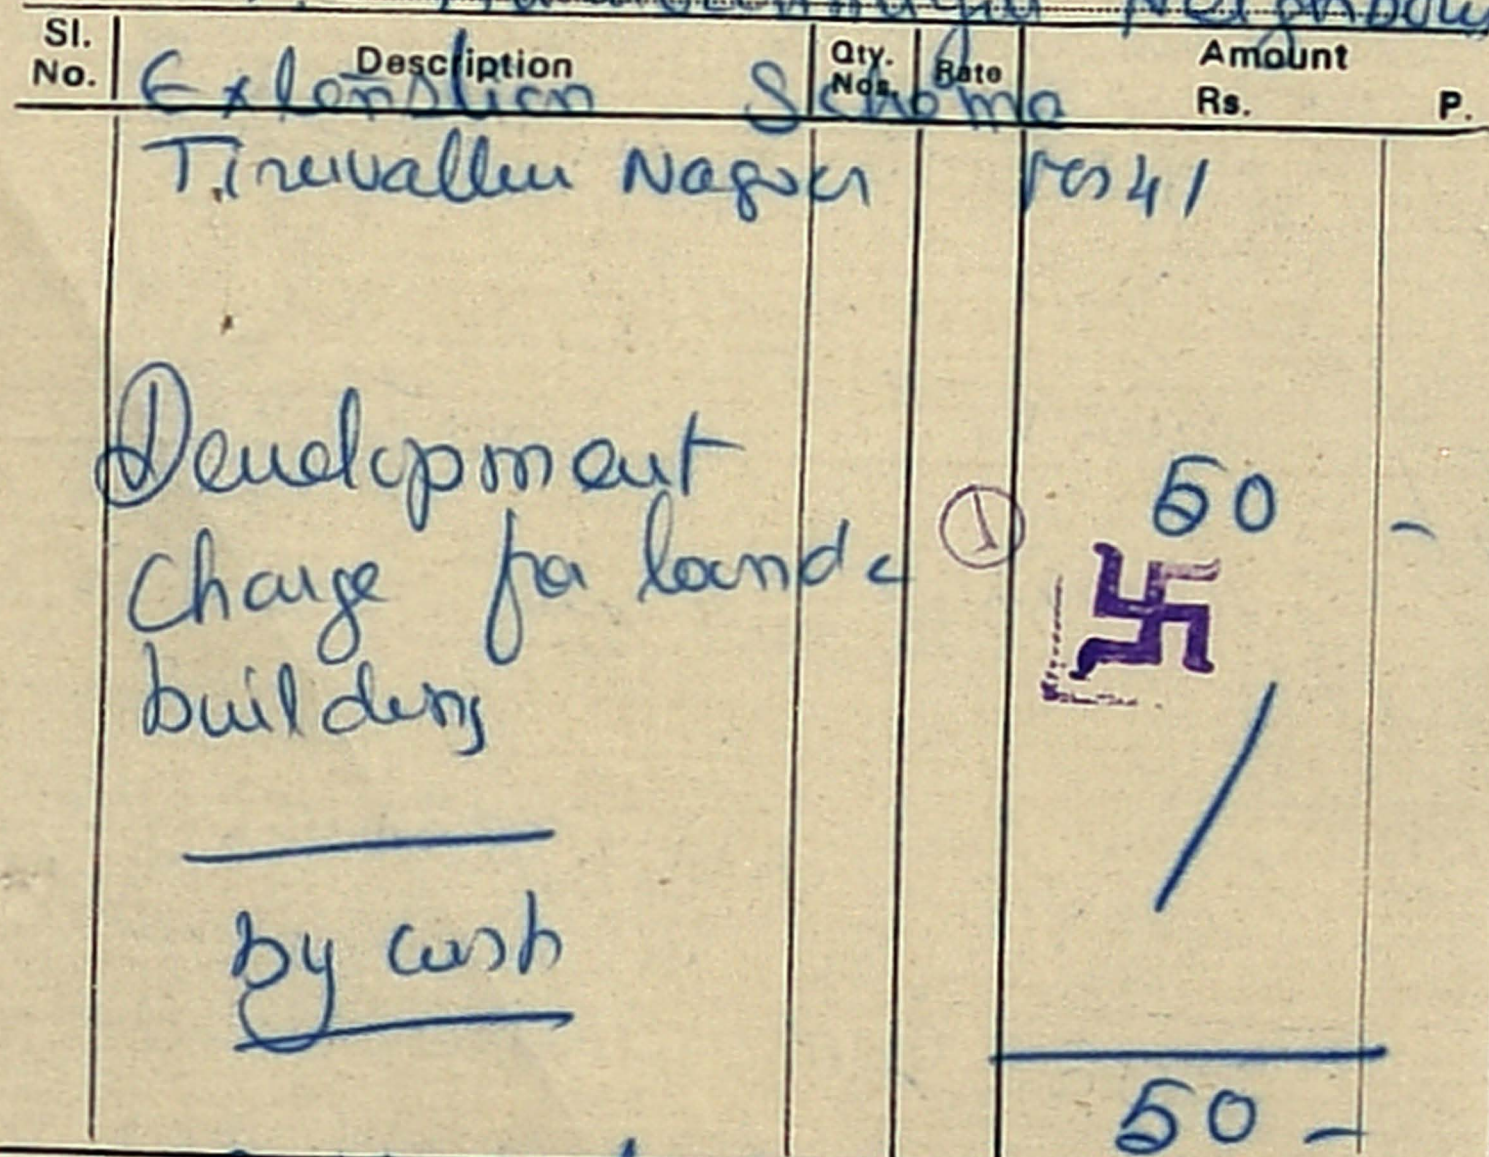 Sl. No. Description Qty. Nos. Rate Amount Rs. P.
Extenstion Schema
Tiruvallur Nagar
Development 50 -
Charge for land &
building
by cash
50 -